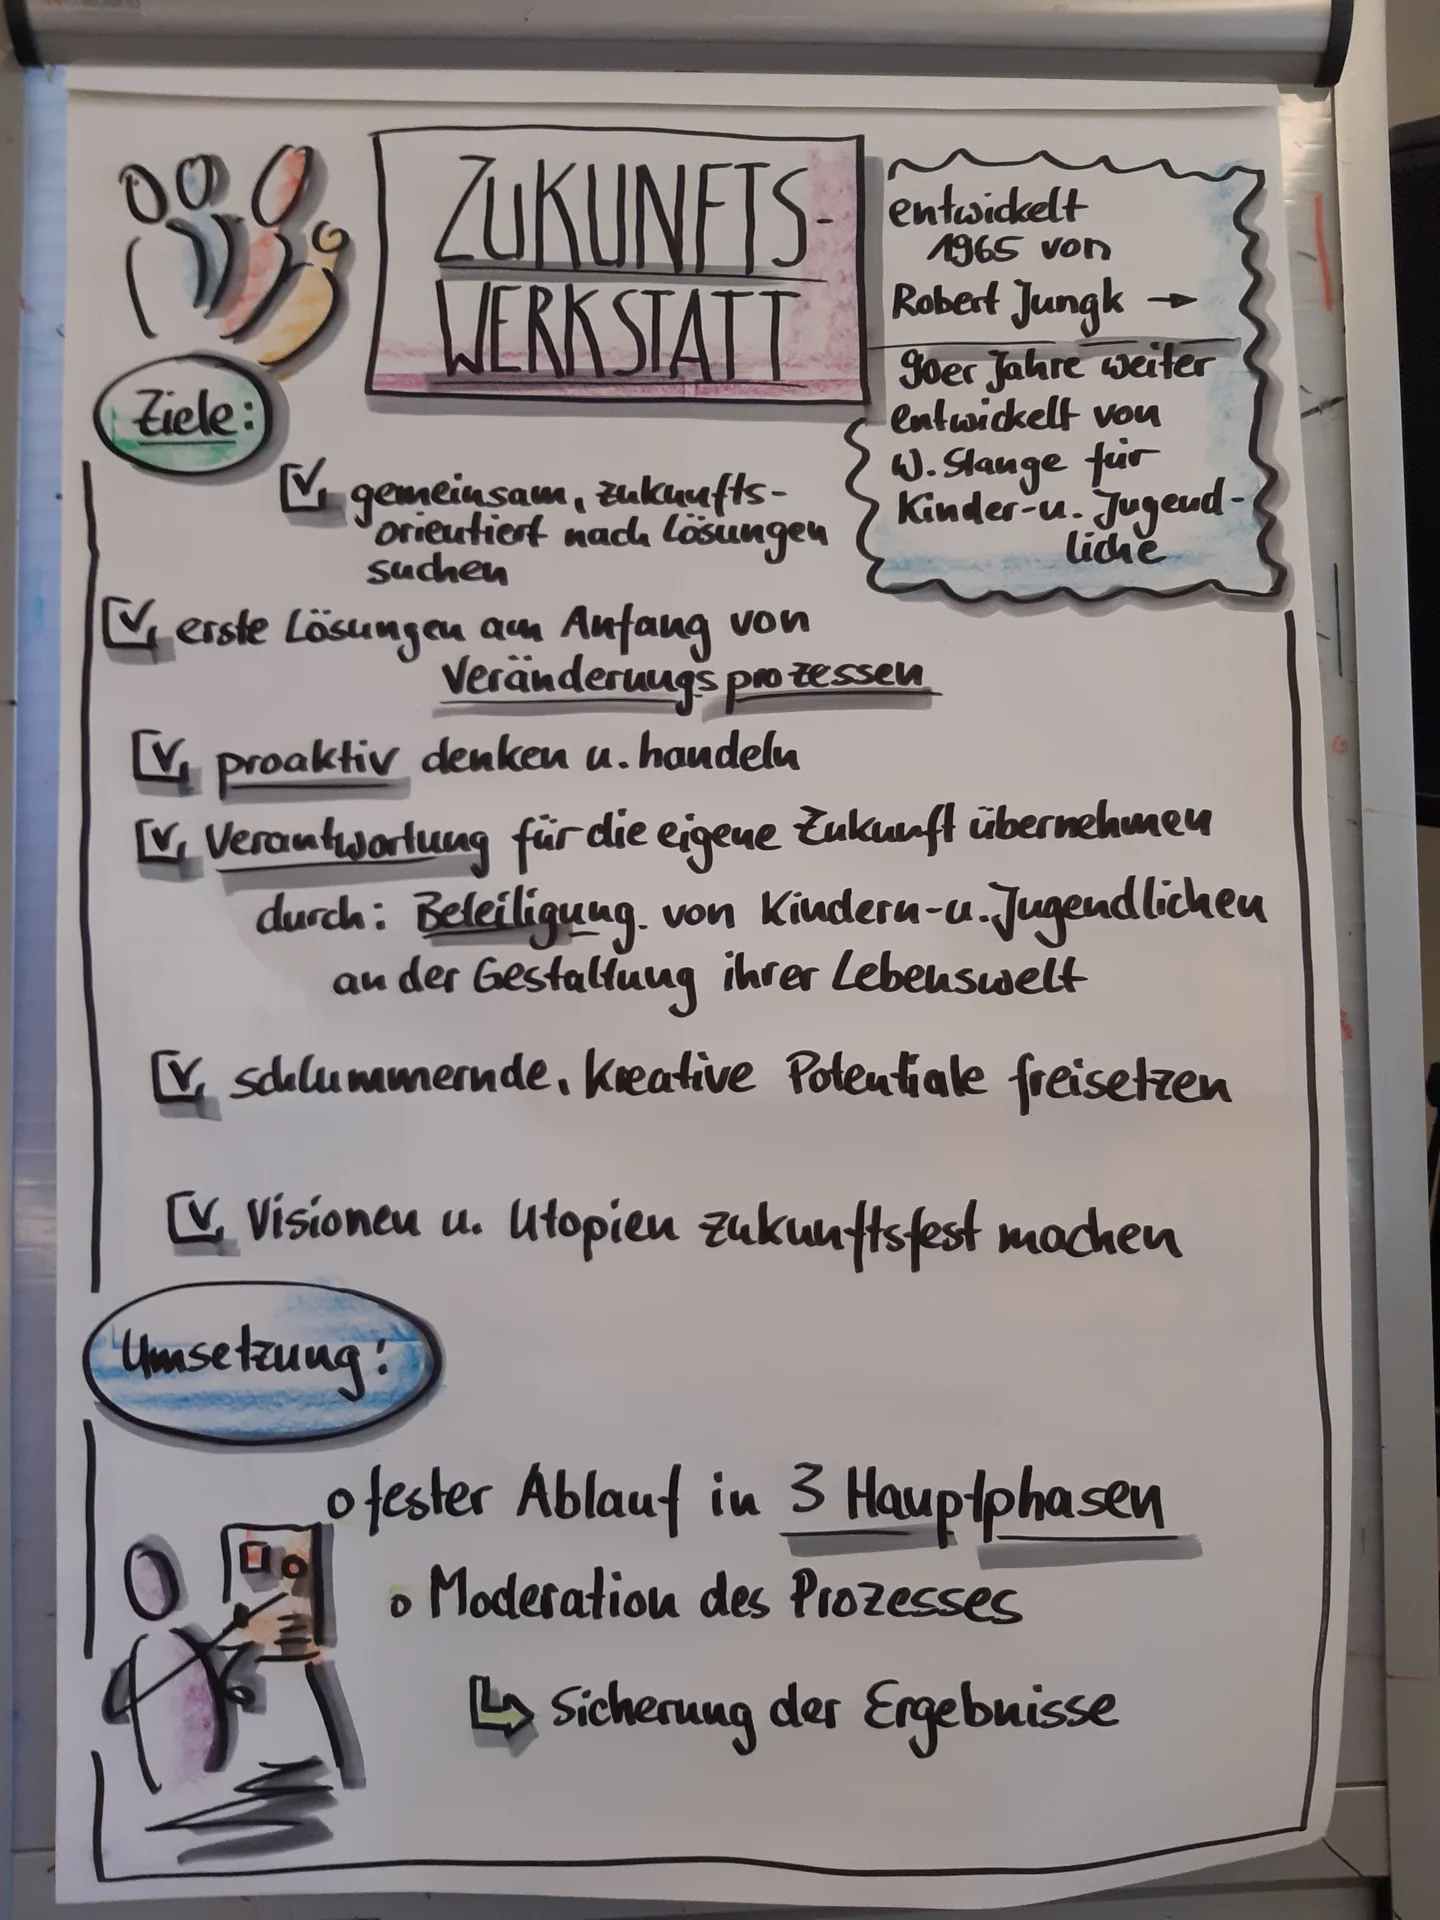 ZUKUNFTS-
WERKSTATT
entwickelt
1965 von
Robert Jungk →
90er Jahre weiter
entwickelt von
W. Stange für
Kinder-u. Jugend-
liche
Ziele:
gemeinsam, zukunfts-
orientiert nach Lösungen
suchen
erste Lösungen am Anfang von
Veränderungsprozessen
proaktiv denken u. handeln
Verantwortung für die eigene Zukunft übernehmen
durch: Beteiligung von Kindern-u. Jugendlichen
an der Gestaltung ihrer Lebenswelt
schlummernde, kreative Potentiale freisetzen
Visionen u. Utopien zukunftsfest machen
Umsetzung:
o fester Ablauf in 3 Hauptphasen
o Moderation des Prozesses
Sicherung der Ergebnisse